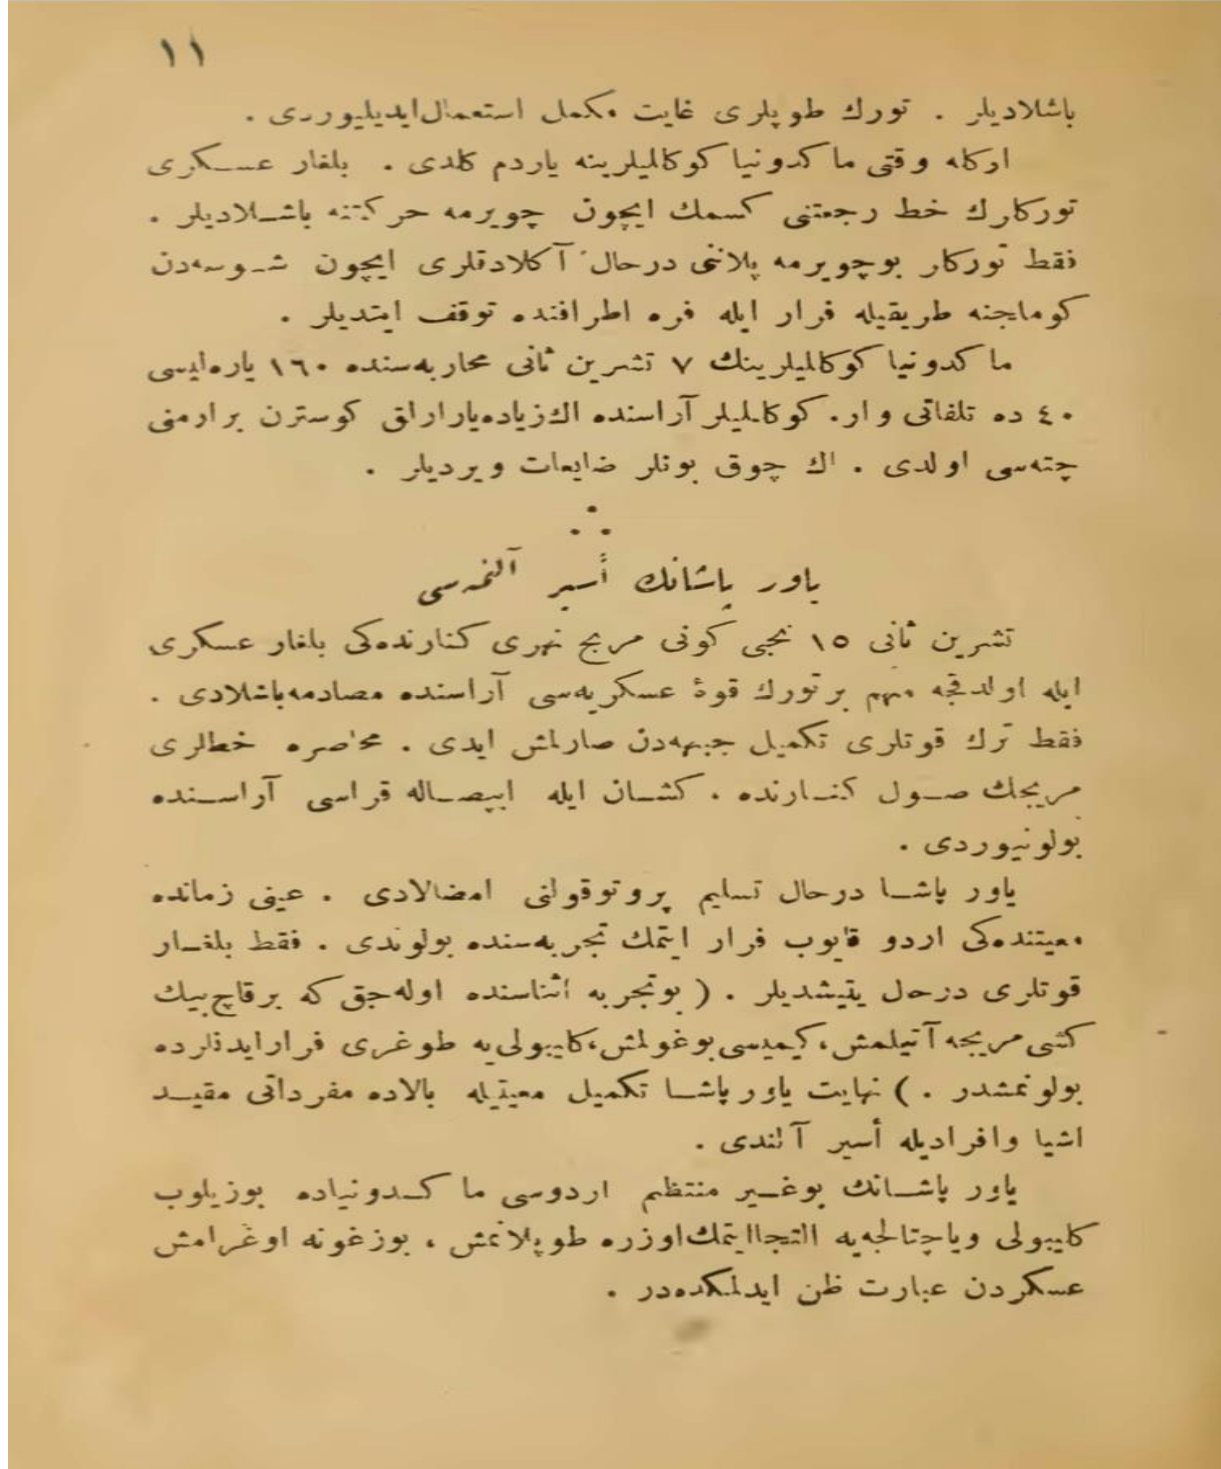 ١١
باشلاديلر . تورك طوپلری غايت مكمل استعمال ايديليوردی .
اوكله وقتی ماكدونيا كوكلليلرينه ياردم كلدی . بلغار عسكری
توركلرك خط رجعتنی كسمك ايچون چويرمه حركتنه باشلاديلر .
فقط توركلر بو چويرمه پلاننی درحال آكلادقلری ايچون شوسه‌دن
كوملجنه طريقيله فرار ايله فره اطرافنده توقف ايتديلر .
ماكدونيا كوكلليلرينك ٧ تشرين ثانی محاربه‌سنده ١٦٠ ياره‌ليسی
٤٠ ده تلفاتی وار. كوكلليلر آراسنده اك زياده يارارلق كوسترن بر ارمنی
چته‌سی اولدی . اك چوق بونلر ضايعات ويرديلر .
ياور پاشانك أسير آلنمه‌سی
تشرين ثانی ١٥ نجی كونی مريج نهری كنارنده‌كی بلغار عسكری
ايله اولدقجه مهم بر تورك قوۀ عسكريه‌سی آراسنده مصادمه باشلادی .
فقط ترك قوتلری تكميل جبهه‌دن صارلمش ايدی . محاصره خطلری
مريجك صول كنارنده . كشان ايله ايپصاله قراسی آراسنده
بولونيوردی .
ياور پاشا درحال تسليم پروتوقولنی امضالادی . عينی زمانده
معيتنده‌كی اردو قايوب فرار ايتمك تجربه‌سنده بولوندی . فقط بلغار
قوتلری درحال يتيشديلر . ( بوتجربه اثناسنده اوله‌جق كه بر قاچ بيك
كشی مريجه آتيلمش، كيميسی بوغولمش، كليبولی‌يه طوغری فرار ايدنلرده
بولونمشدر . ) نهايت ياور پاشا تكميل معيتيله بالاده مفرداتی مقيد
اشيا وافراديله أسير آلندی .
ياور پاشانك بوغير منتظم اردوسی ماكدونياده بوزيلوب
كليبولی وياچتالجه‌يه التجا ايتمك اوزره طوپلانمش ، بوزغونه اوغرامش
عسكردن عبارت ظن ايدلمكده‌در .